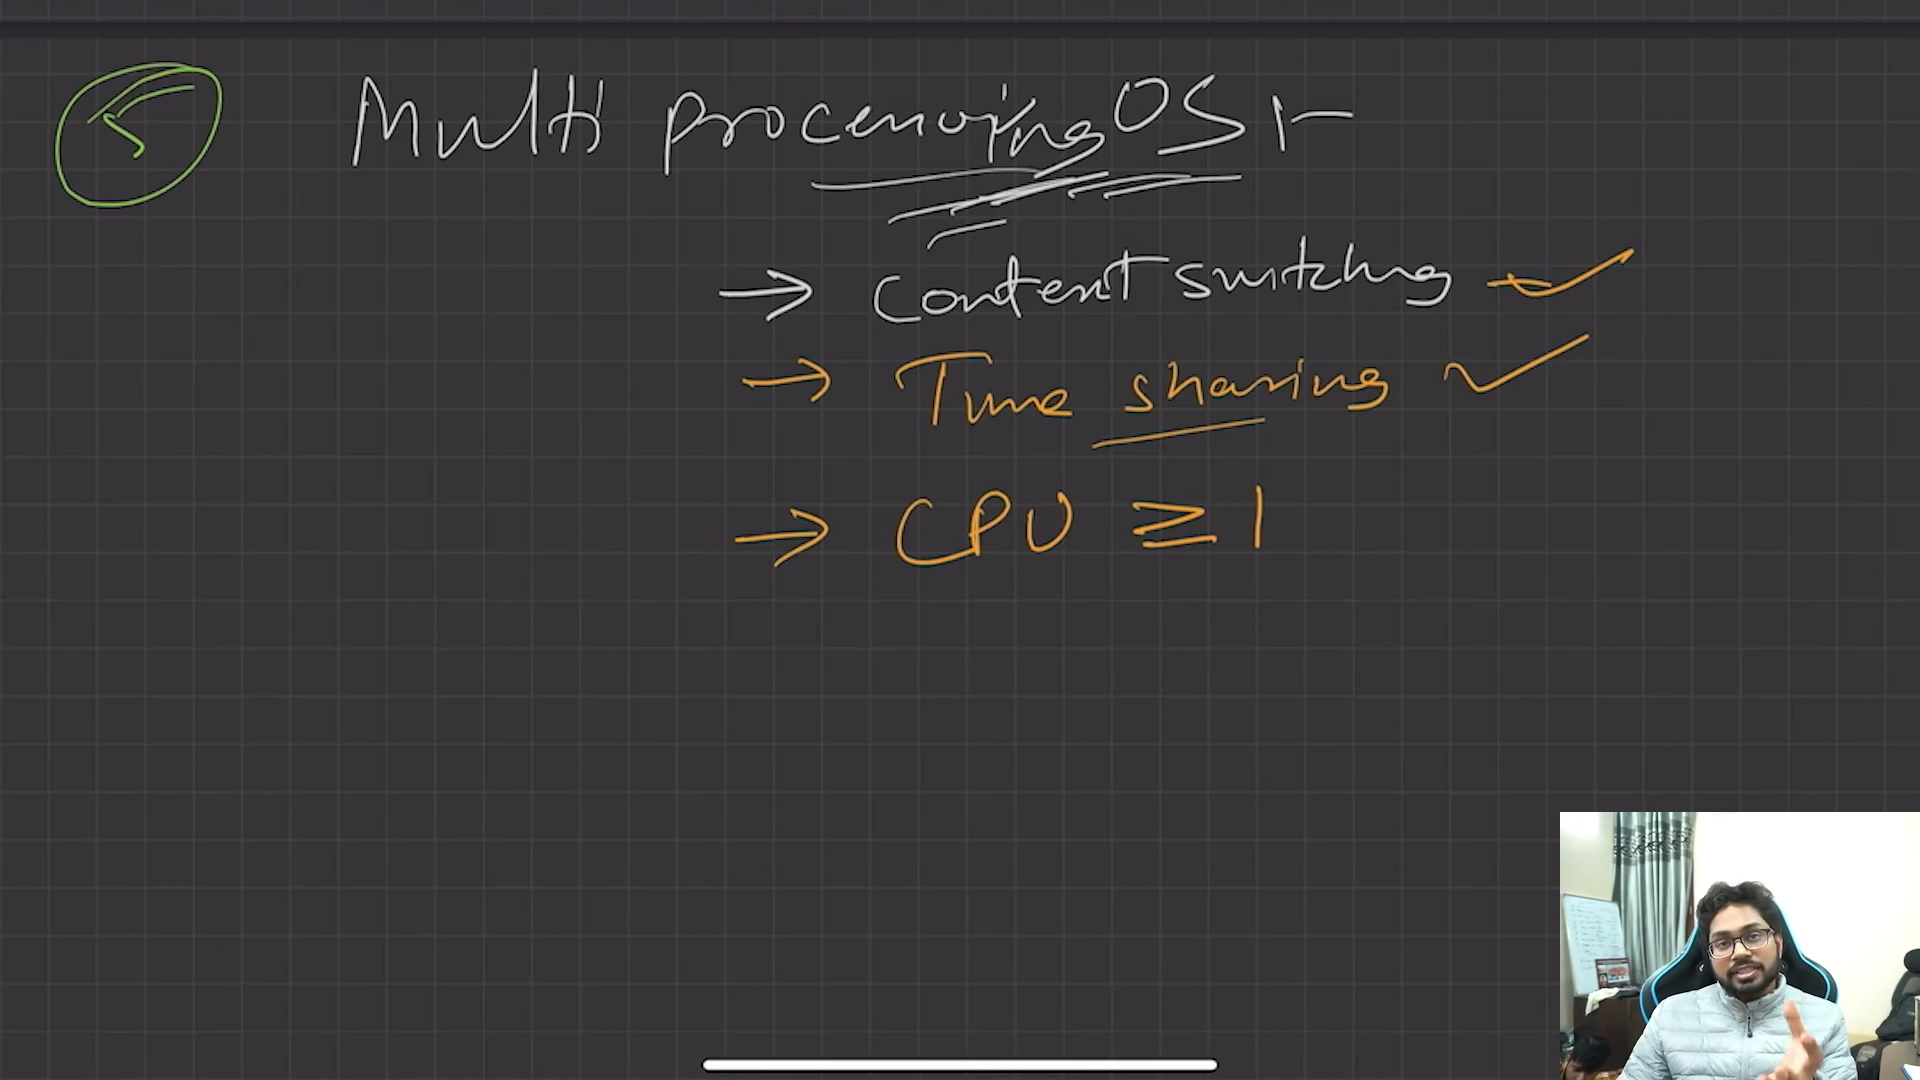 5 Multi processing OS :-
→ Context switching ✓
→ Time sharing ✓
→ CPU ≥ 1